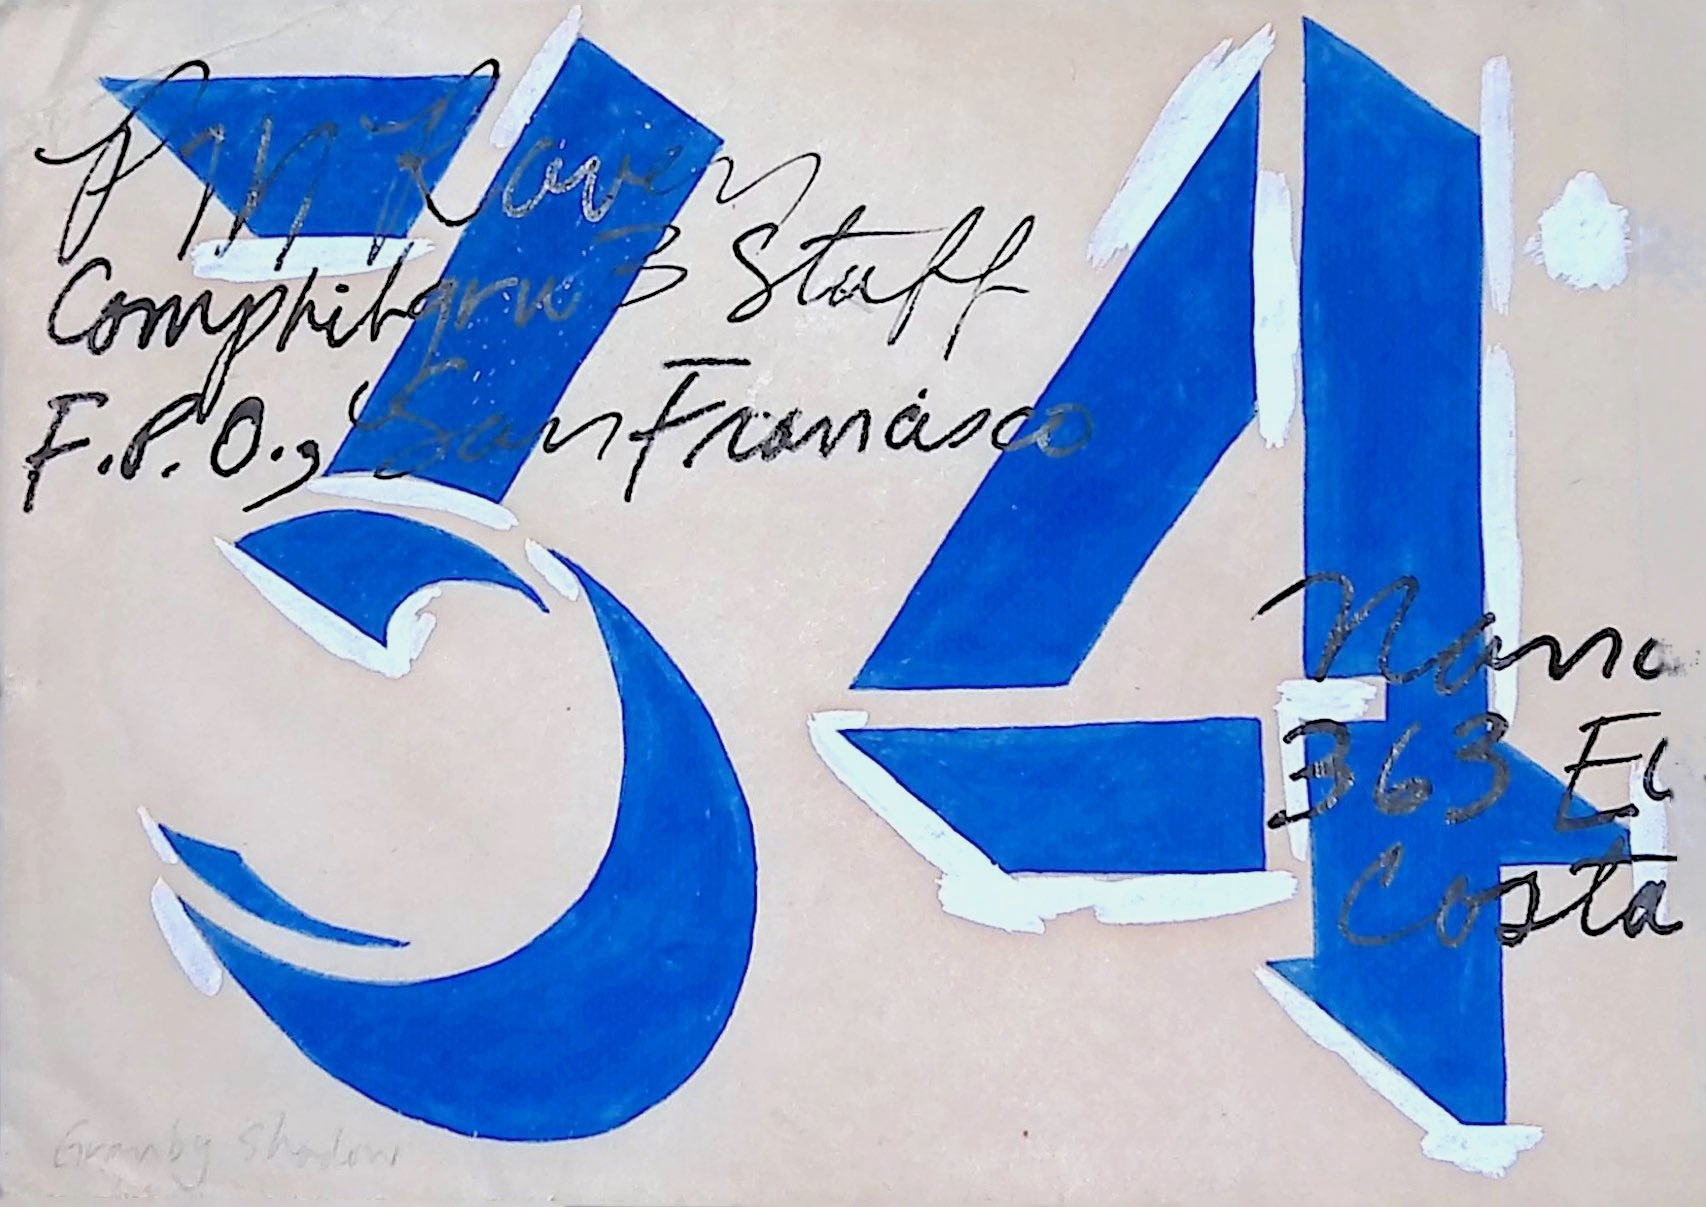 34
PM Raven
Comphibgru 3 Staff
F.P.O., San Francisco
Nanc
363 El
Costa
Granby Shadow